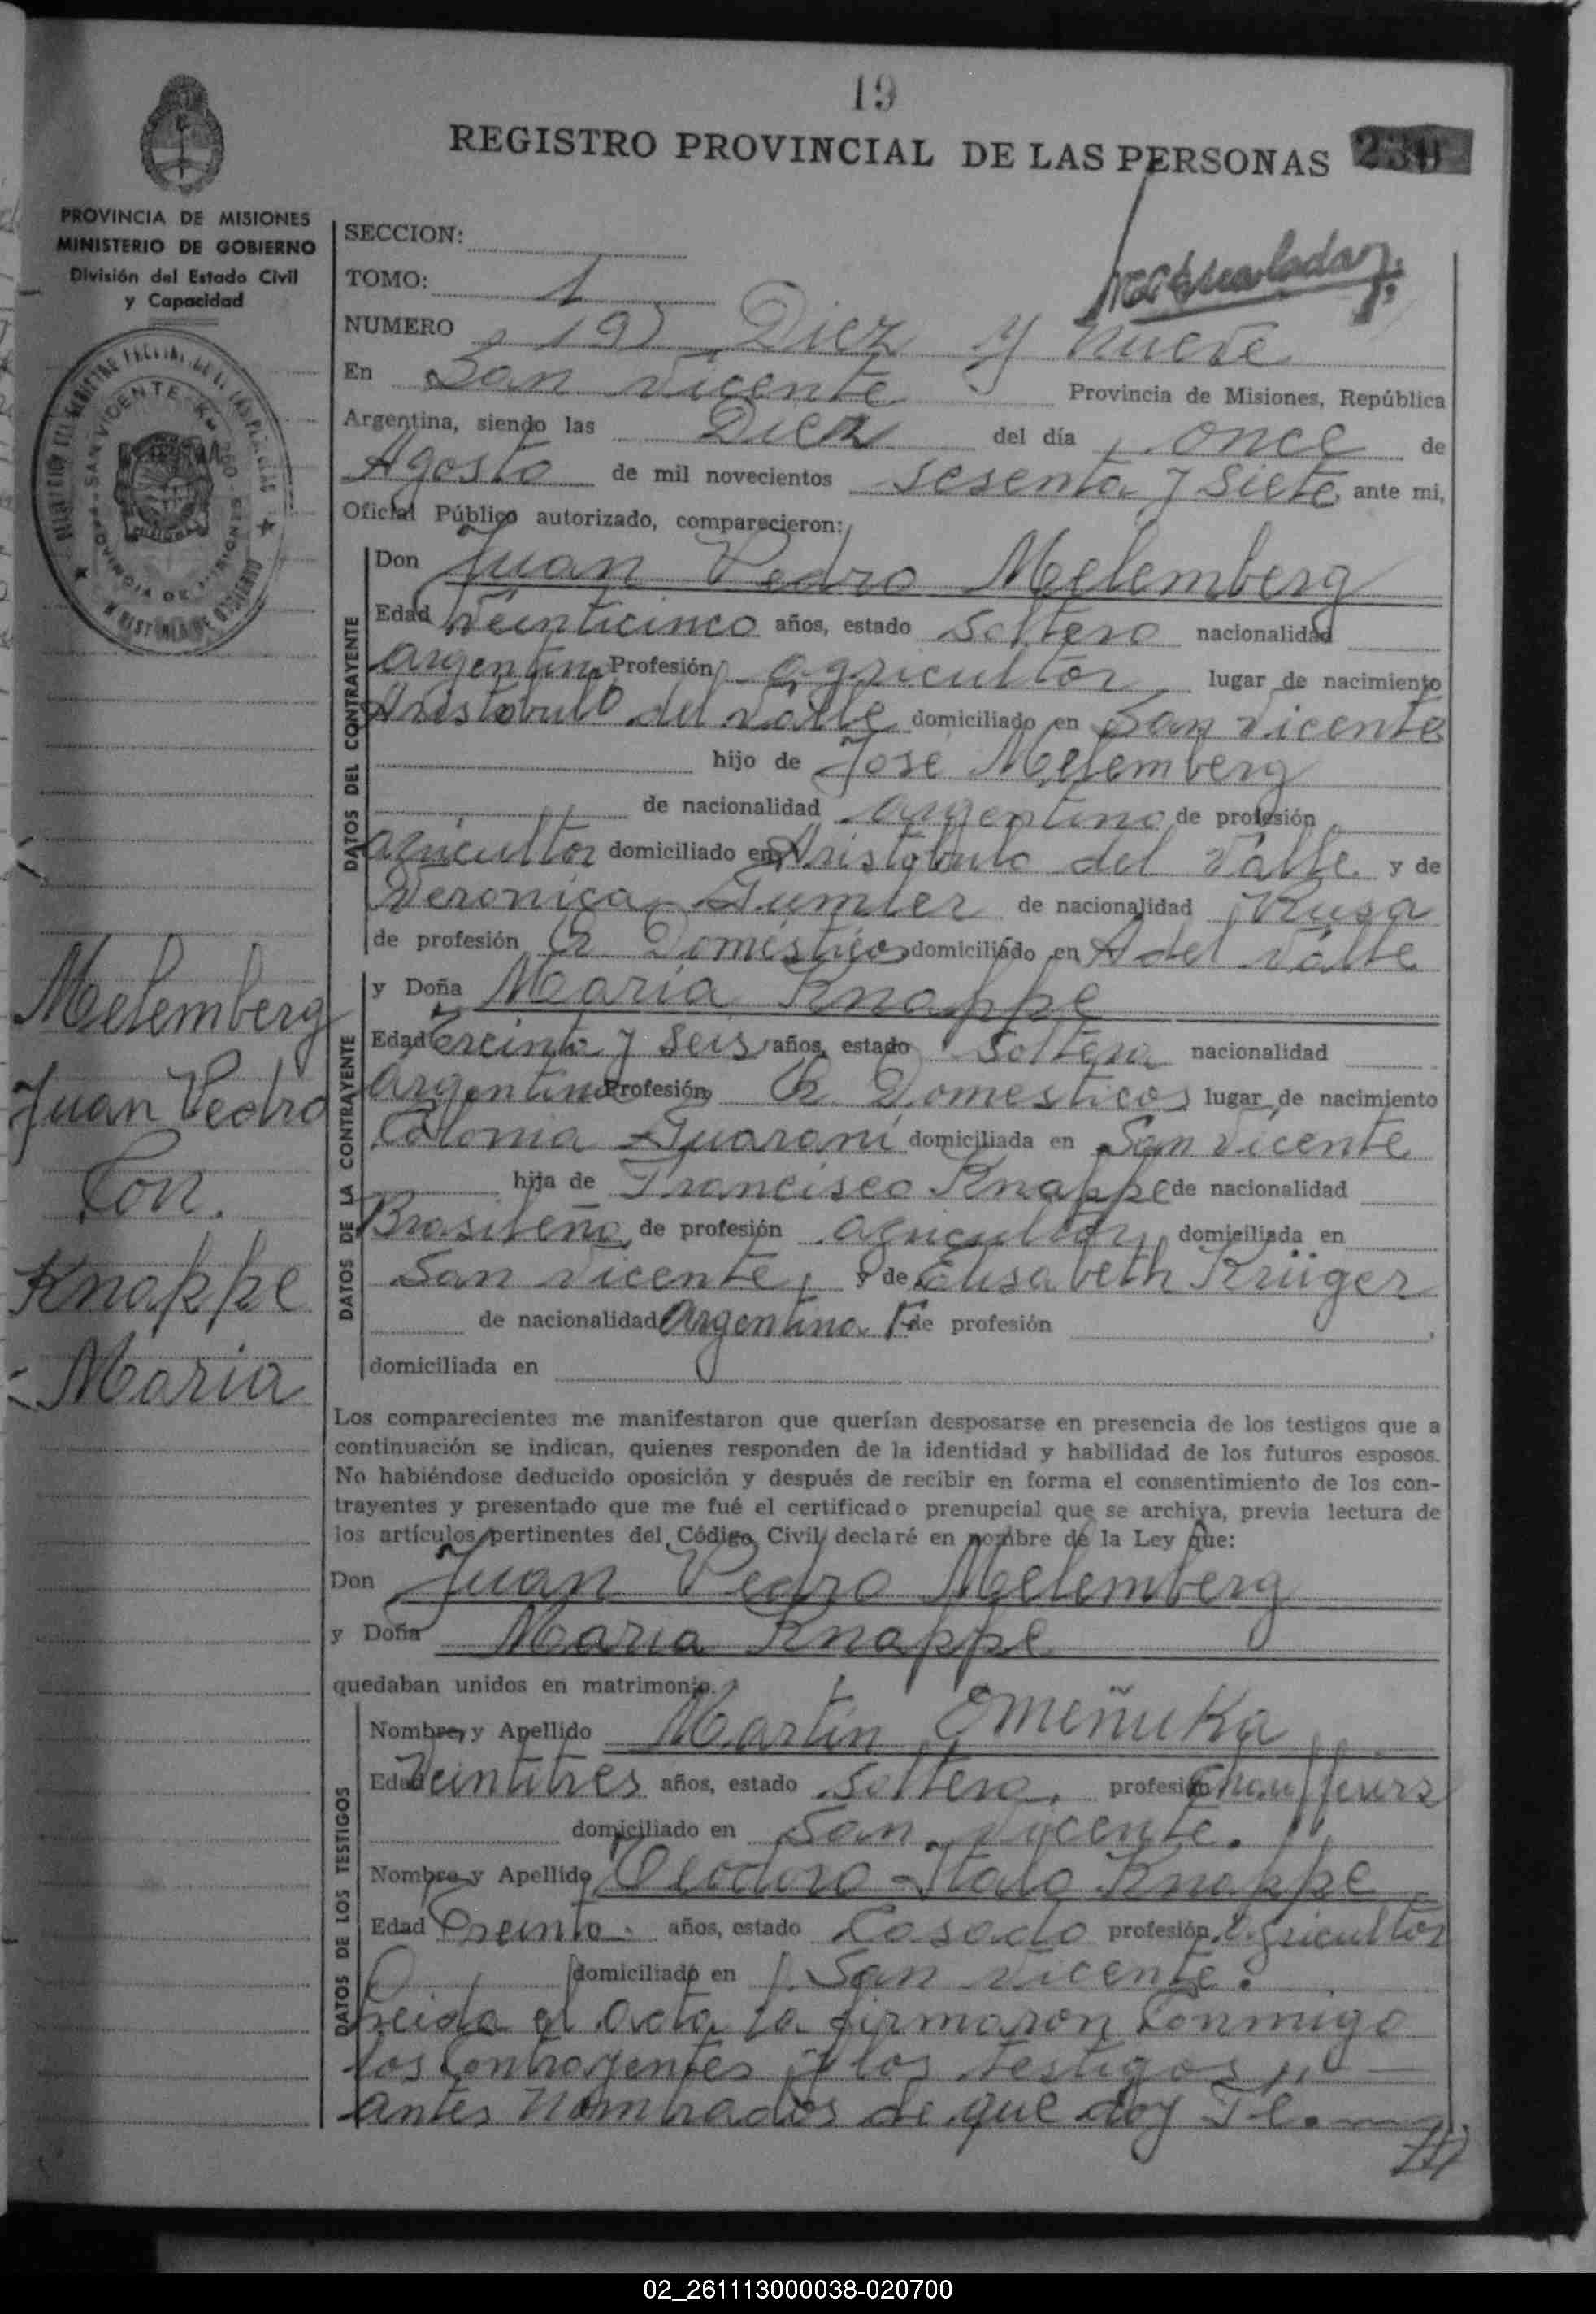 19
REGISTRO PROVINCIAL DE LAS PERSONAS
PROVINCIA DE MISIONES
MINISTERIO DE GOBIERNO
División del Estado Civil
y Capacidad
SECCION:
TOMO: 1
NUMERO 19) Diez y nueve
En San Vicente Provincia de Misiones, República
Argentina, siendo las Diez del día once de
Agosto de mil novecientos sesenta y siete ante mi,
Oficial Público autorizado, comparecieron:
DATOS DEL CONTRAYENTE
Don Juan Pedro Melemberg
Edad Veinticinco años, estado Soltero nacionalidad
argentina Profesión agricultor lugar de nacimiento
Aristobulo del Valle domiciliado en San Vicente
hijo de Jose Melemberg
de nacionalidad argentino de profesión
agricultor domiciliado en Aristobulo del Valle y de
Veronica de nacionalidad Rusa
de profesión Q Domesticos domiciliado en A del Valle
DATOS DE LA CONTRAYENTE
y Doña Maria Knappe
Edad Treinta y seis años, estado Soltera nacionalidad
argentina Profesión Q Domesticos lugar de nacimiento
Colonia Guarani domiciliada en San Vicente
hija de Francisco Knappe de nacionalidad
Brasileña de profesión agricultor domiciliada en
San Vicente, y de Elisabeth Krüger
de nacionalidad Argentina F de profesión
domiciliada en
Melemberg
Juan Pedro
Con.
Knappe
Maria
Los comparecientes me manifestaron que querían desposarse en presencia de los testigos que a
continuación se indican, quienes responden de la identidad y habilidad de los futuros esposos.
No habiéndose deducido oposición y después de recibir en forma el consentimiento de los con-
trayentes y presentado que me fué el certificado prenupcial que se archiva, previa lectura de
los artículos pertinentes del Código Civil declaré en nombre de la Ley que:
Don Juan Pedro Melemberg
y Doña Maria Knappe
quedaban unidos en matrimonio.
DATOS DE LOS TESTIGOS
Nombre y Apellido Martin Omeñuka
Edad Veintitres años, estado Soltero, profesión Chauffeurs
domiciliado en San Vicente.
Nombre y Apellido Teodoro Italo Knappe
Edad Treinta años, estado Casado profesión agricultor
domiciliado en San Vicente.
Leida el acta la firmaron Conmigo
los Contrayentes y los testigos
antes Nombrados de que doy Fe.
02_261113000038-020700